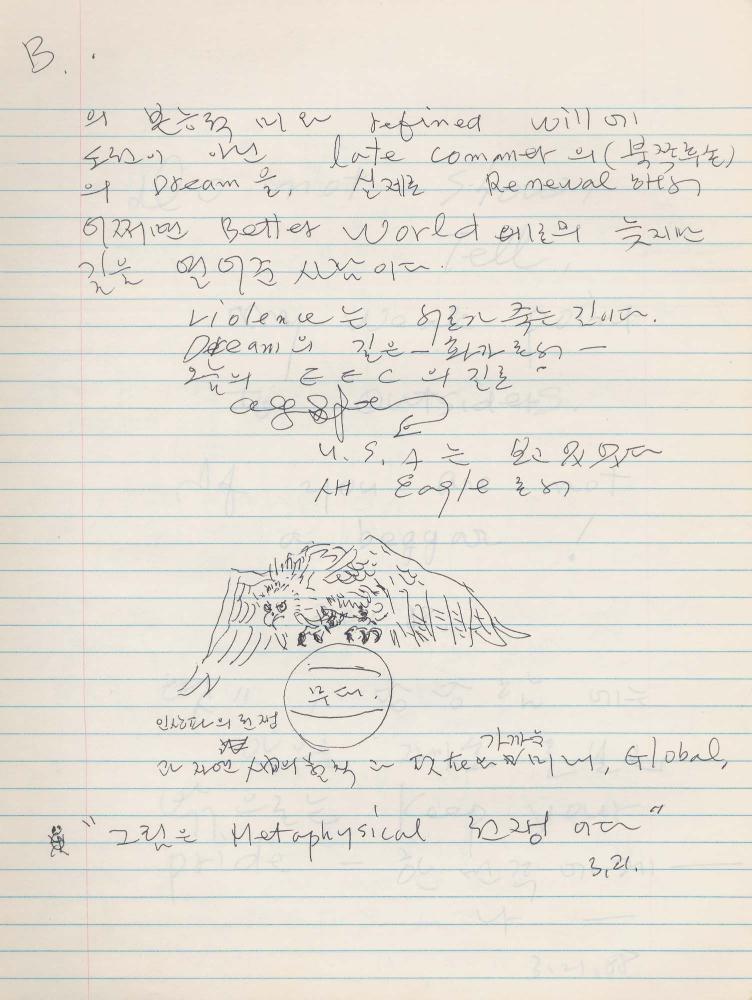 B.
의 본능적 미와 refined will에
도전이 아닌 late commer의 (북쪽루는)
의 Dream을, 실제로 Renewal 하여
어쩌면 Better World 에로의 늦지만
길을 열어준 사람이다.
violence는 서로가 죽는 길이다.
Dream의 길은 - 화가로서 -
오늘의 E E C 의 길로
U. S. A 는 보고 있었다
새 Eagle 로서
무대.
인상파의 전쟁
가까운
과 자연 의 과 미래, Global,
"그림은 Metaphysical 전쟁 이다"
3, 21.